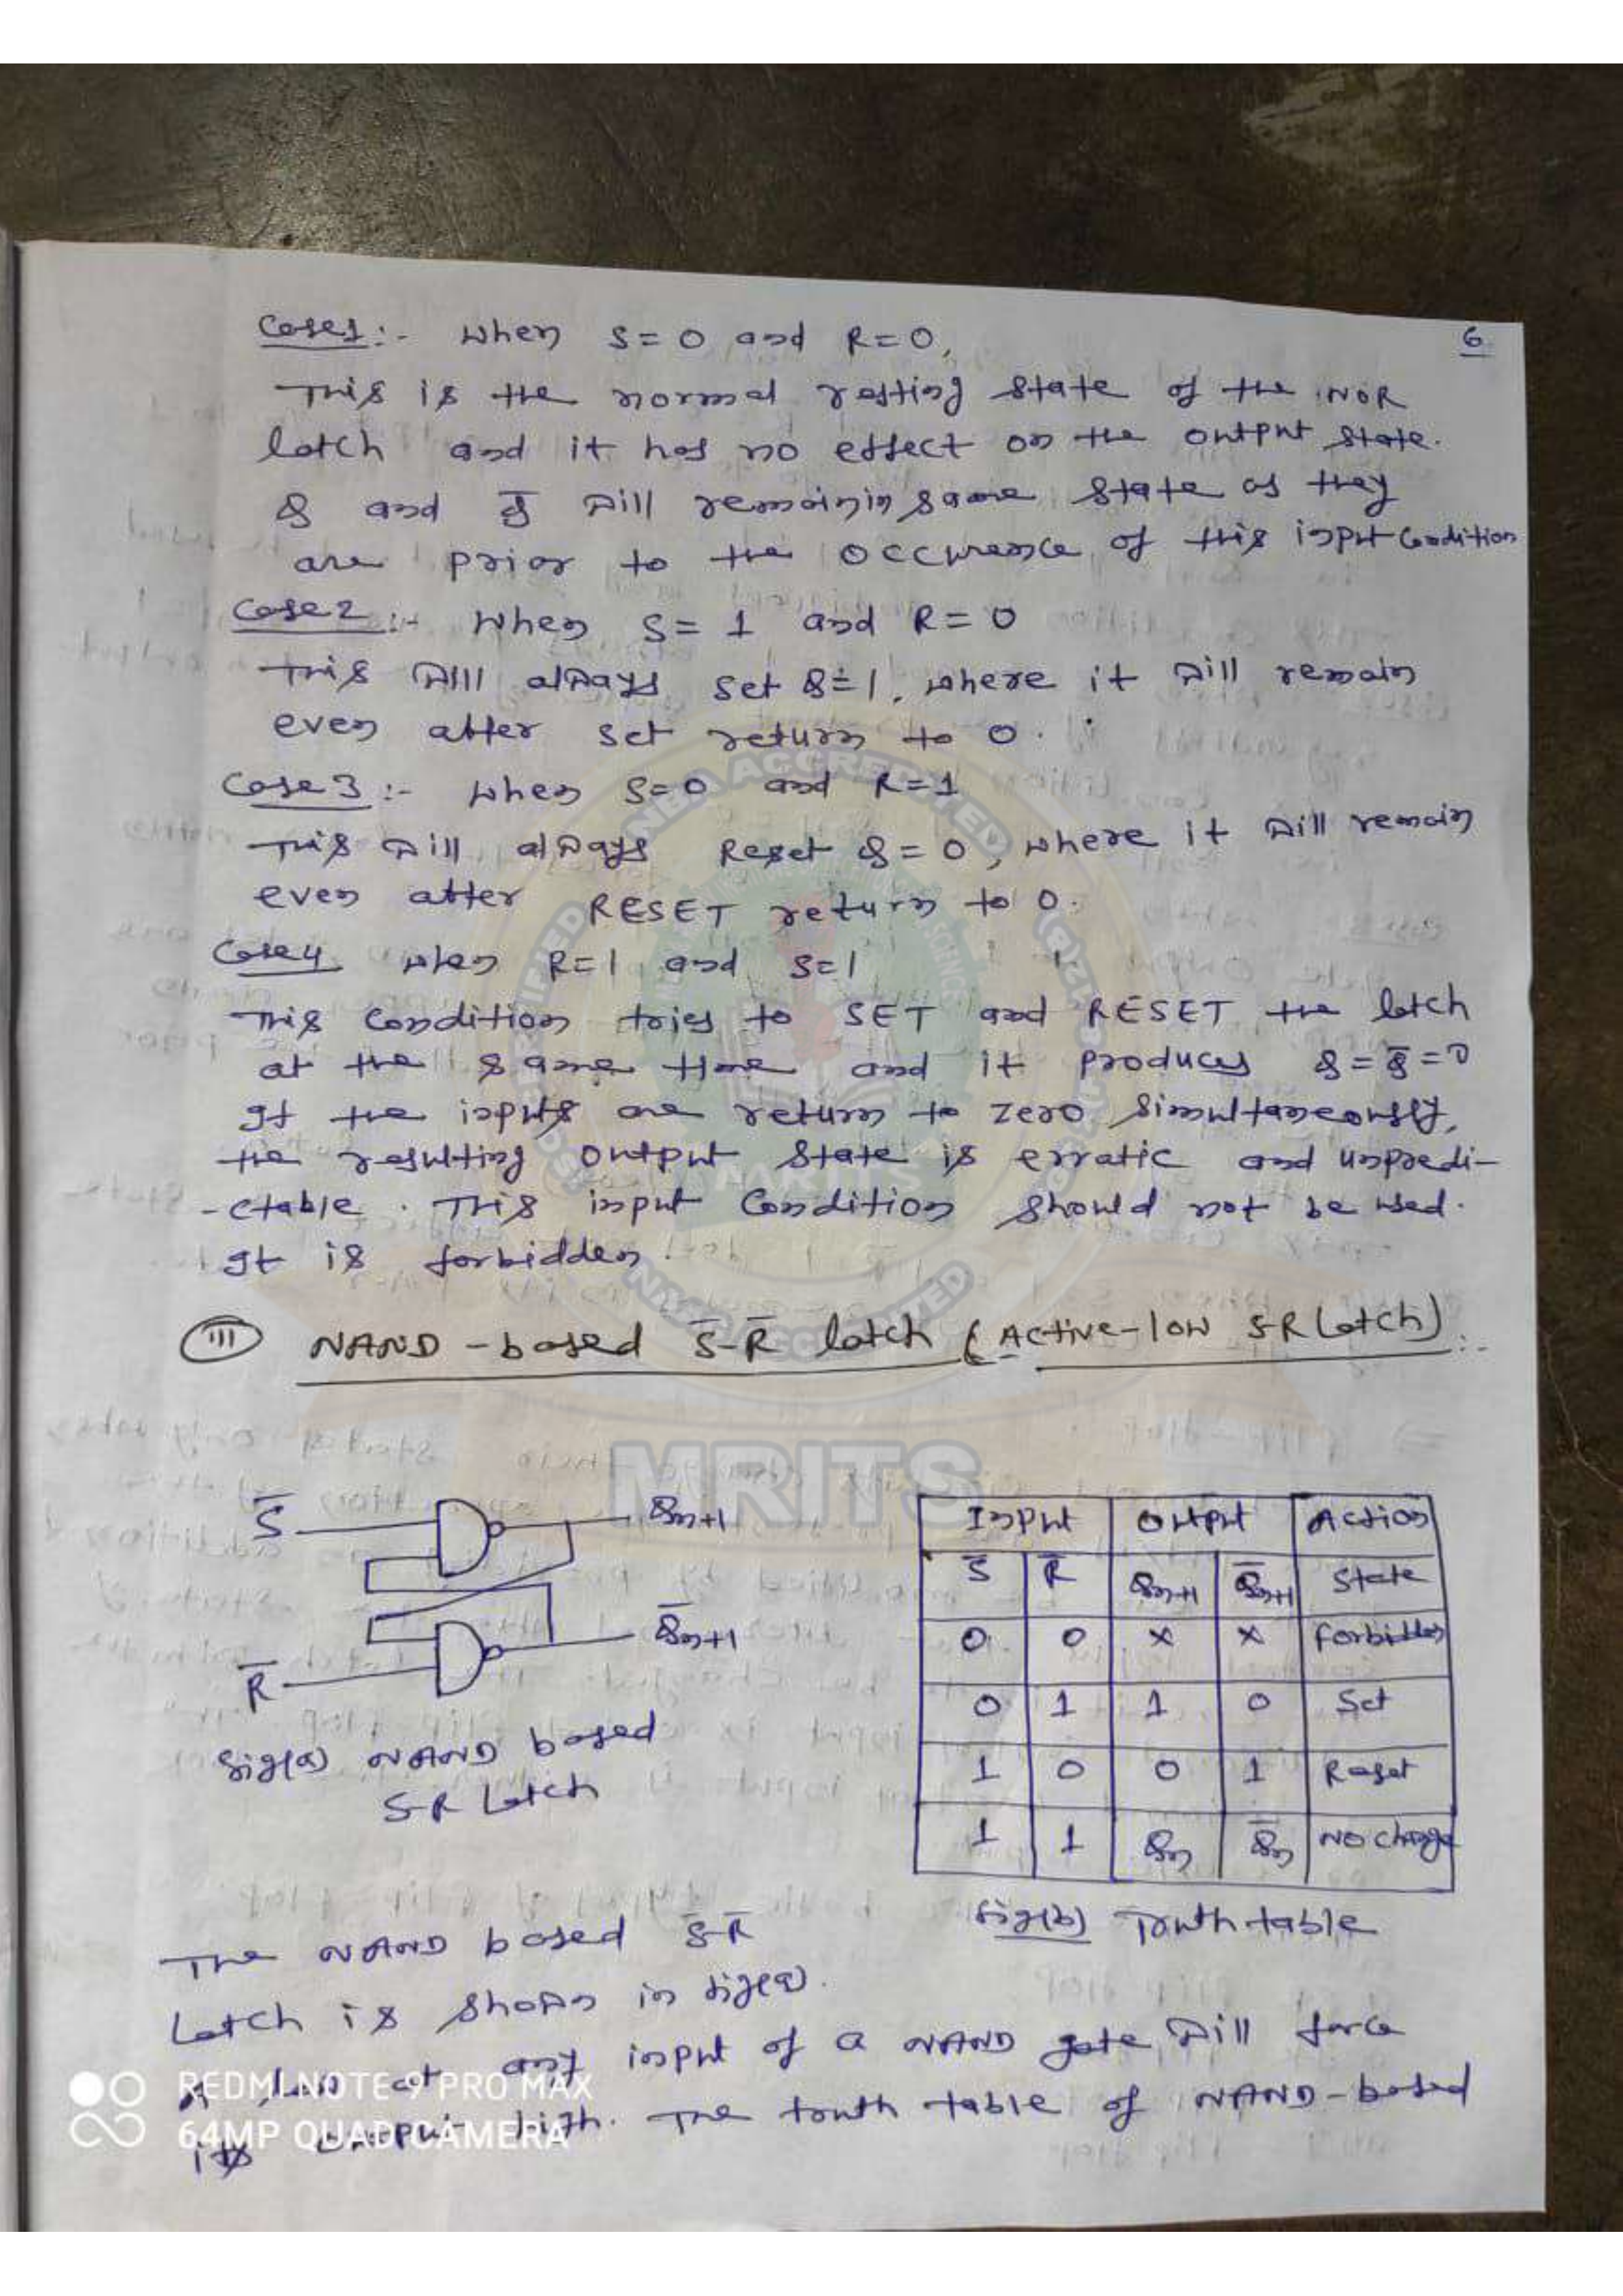 6
Case1:- when S=0 and R=0,
This is the normal resting state of the NOR
latch and it has no effect on the output state.
Q and Q̅ will remain in same state as they
are prior to the occurence of this input condition
Case2:- When S=1 and R=0
This will always set Q=1, where it will remain
even after set return to 0.
Case3:- when S=0 and R=1
This will always Reset Q=0, where it will remain
even after RESET return to 0.
Case4 when R=1 and S=1
This condition tries to SET and RESET the latch
at the same time and it produces Q=Q̅=0
If the inputs are return to zero simultaneously,
the resulting output state is erratic and unpredi-
-ctable. This input condition should not be used.
It is forbidden.
(iii) NAND-based S̅-R̅ latch (Active-low S-R Latch):-
S̅ Qn+1
R̅ Q̅n+1
fig(a) NAND based
S-R Latch
Input Output Action
S̅ R̅ Qn+1 Q̅n+1 State
0 0 × × Forbidden
0 1 1 0 Set
1 0 0 1 Reset
1 1 Qn Q̅n No change
fig(b) Truth table
The NAND based S̅-R̅
Latch is shown in fig(a).
A low at any input of a NAND gate will force
its output high. The truth table of NAND-based
REDMI NOTE 9 PRO MAX
64MP QUAD CAMERA
NBA ACCREDITED
NAAC ACCREDITED
MRITS